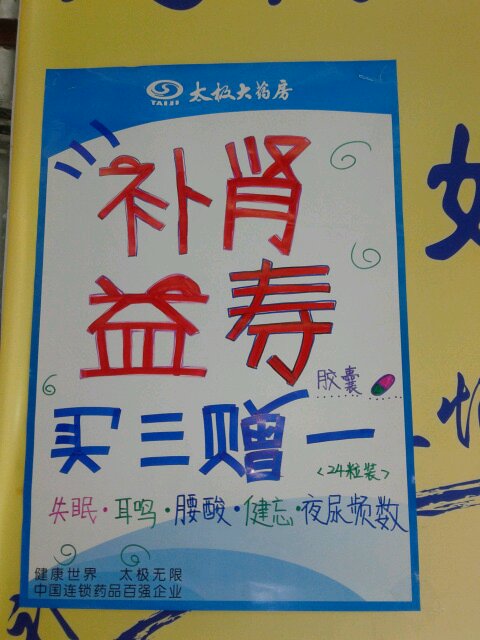 太极大药房
TAIJI
补肾
益寿
胶囊
买三赠一
<24粒装>
失眠·耳鸣·腰酸·健忘·夜尿频数
健康世界 太极无限
中国连锁药品百强企业